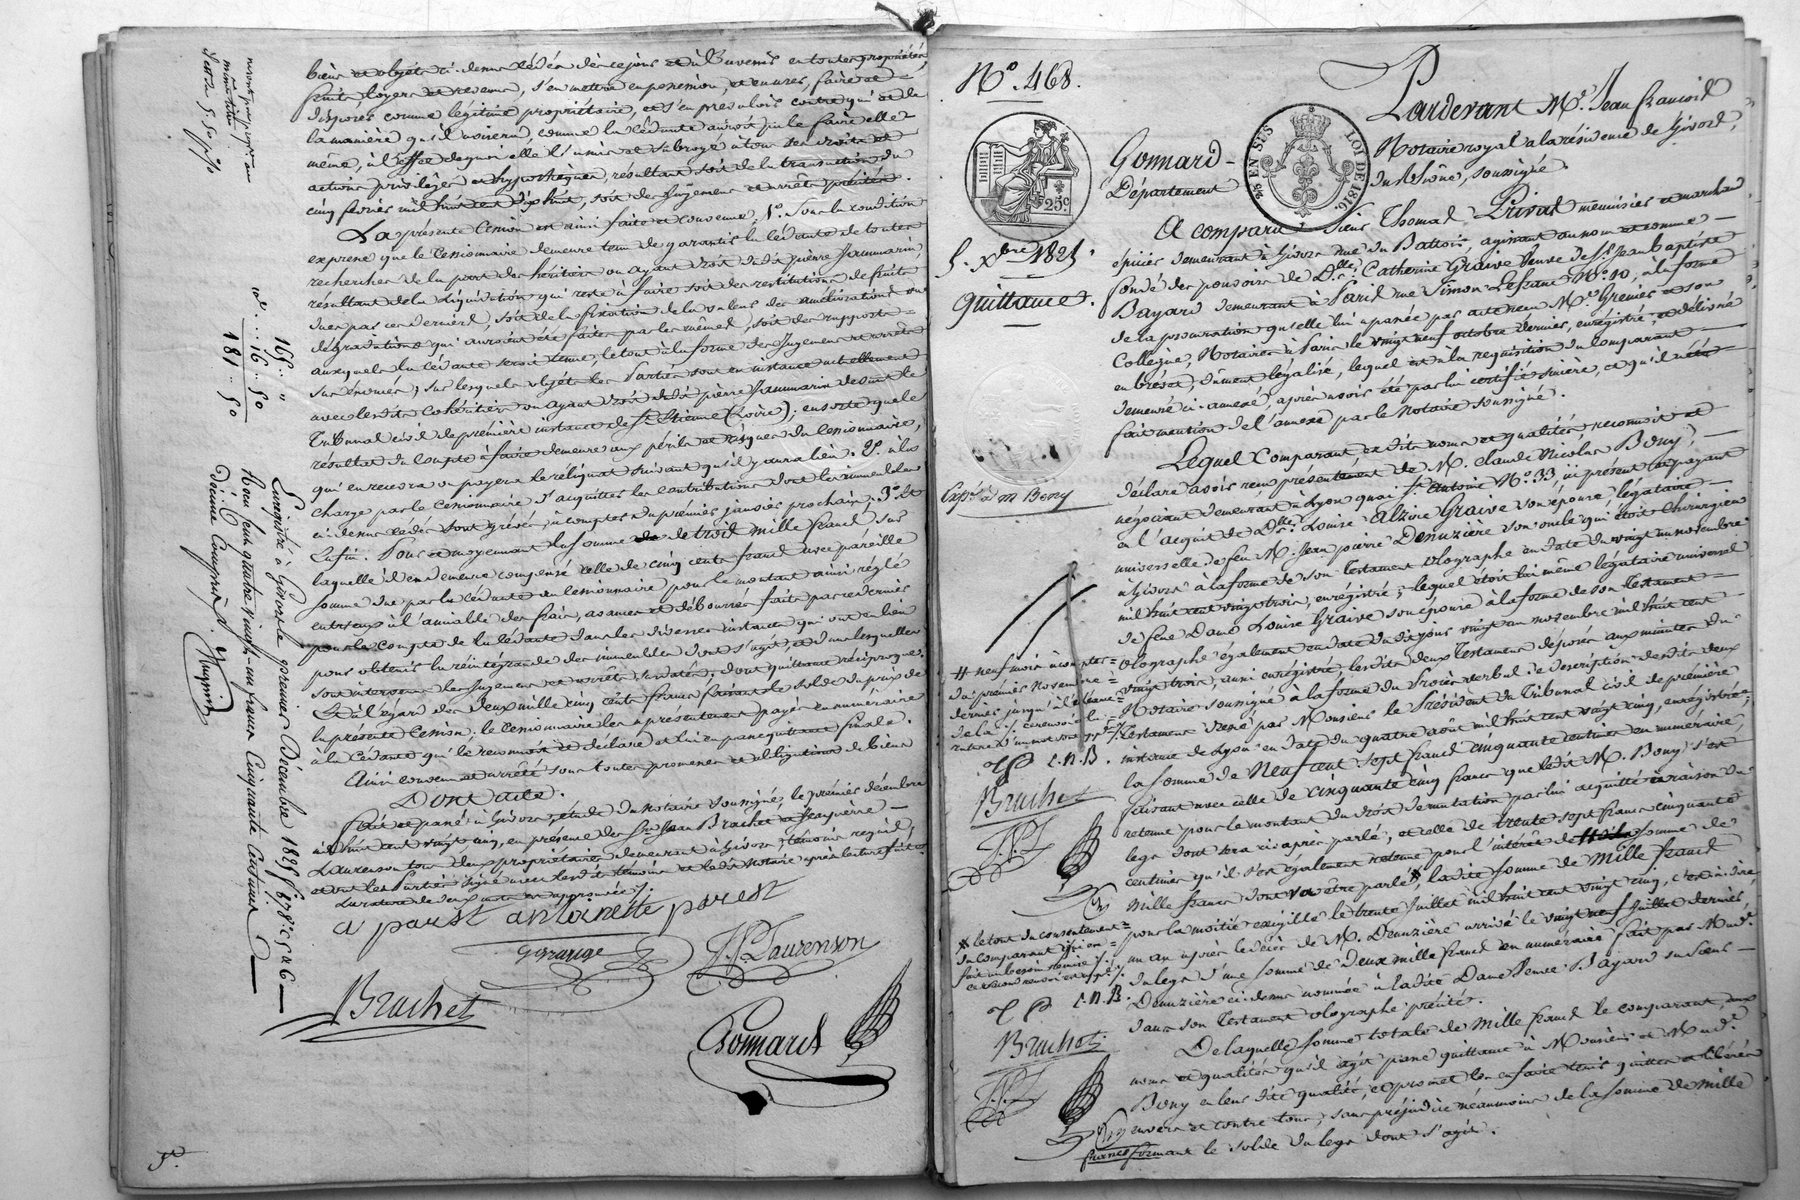 biens et objets ci-dessus cédés dès ce jour et à l'avenir en toutes propriétés
fruits loyers et revenus, s'en mettre en possession, et en user, faire et
disposer comme légitime propriétaire, et s'en prévaloir contre qui et de
la manière qu'il avisera, comme la cédante auroit pu le faire elle
même, à l'effet de quoi elle l'a mis et subrogé à tous ses droits et
actions privilèges et hypothèques, résultant soit de la transaction du
cinq février mil huit cent dix huit, soit des jugemens et arrêts précités.
La présente Cession est ainsi faite et convenue, 1º. Sous la condition
expresse que le Cessionnaire demeure tenu de garantir la cédante de toutes
recherches de la part des héritiers ou ayant droit dudit pierre
résultant de la liquidation qui reste à faire soit des restitutions de fruits
dues par ces derniers, soit de la fixation de la valeur des améliorations ou
dégradations qui auroient été faites par les mêmes, soit des rapports
auxquels la cédante seroit tenue, le tout à la forme des jugemens et arrêts
sus énoncés; sur lesquels objets les Parties sont en instance actuellement
avec lesdits Cohéritiers ou ayant droit dudit pierre devant le
Tribunal civil de première instance de St. Etienne (Loire); en sorte que le
résultat du compte à faire demeure aux périls et risques du Cessionnaire,
qui en recevra ou payera le réliquat suivant qu'il y aura lieu. 2º. à la
charge par le Cessionnaire d'acquitter les contributions dont les immeubles
ci-dessus cédés sont grevés, à compter du premier janvier prochain; 3º. Et
Enfin. Pour et moyennant la somme de trois mille francs sur
laquelle il en demeure compensé celle de cinq cents francs avec pareille
somme due par la cédante au cessionnaire pour le montant ainsi réglé
entr'eux à l'amiable des frais, avances et débourrés faits par ce dernier
pour le compte de la cédante dans les diverses instances qui ont eu lieu
pour obtenir la réintégrande des immeubles dont s'agit, et dans lesquelles
sont intervenus les jugemens et arrêts susdatés; dont quittance réciproque.
Et à l'égard des deux mille cinq cents francs faisant le solde du prix de
la présente Cession, le Cessionnaire les a présentement payés en numéraire
à la Cédante qui le reconnoit et déclare et lui en passe quittance finale.
Ainsi convenu et arrêté sous toutes promesses et obligations de biens
Dont acte.
Fait et passé à Givors, étude du Notaire soussigné, le premier décembre
mil huit cent vingt cinq, en présence des Srs. Jean Brachet et Jean pierre
Laurenson tous deux propriétaires demeurant à Givors, témoins requis,
et ont les Parties signé avec lesdits témoins et ledit Notaire après lecture faite
a parest antoinette parest
JP. Laurenson
Brachet
Gonnard
165 "
16 50
181 50
Enregistré à Givors le premier Décembre 1825 fº 78 rº c. 5 à 6
Reçu Cent quatre vingt-un francs Cinquante Centimes
Décime Compris.
Nº. 468.
25c.
5. Xbre 1825.
Quittance.
Expon. à m Bony
Gonnard
Département
25 EN SUS
LOI DE 1816.
Pardevant Me. Jean francois
Notaire royal à la résidence de Givors,
du Rhône, soussigné
A comparu Sieur Thomas Privat menuisier et marchand
épicier demeurant à Givors rue du Battoir, agissant au nom et comme
fondé des pouvoirs de Dlle. Catherine Graive Veuve de Sr. Jean baptiste
Bayard demeurant à Paris rue Simon Lefranc Nº. 10, à la forme
de la procuration qu'elle lui a passée par acte reçu Me. Grenier et son
Collègue, Notaires à Paris le vingt neuf octobre dernier, enregistré, et délivré
en brévet, dûment légalisé, lequel est à la réquisition du Comparant
demeuré ci-annexé, après avoir été par lui certifié sincère, et qu'il a été
fait mention de l'annexe par le Notaire soussigné.
Lequel Comparant, esdits noms et qualités, reconnoit et
déclare avoir reçu présentement de M. Claude Nicolas Bony,
négociant demeurant à Lyon quai St. Antoine Nº. 33, ici présent et payant
en l'acquit de De. Louise Alzire Graive son épouse légataire
universelle de feu M. Jean pierre Denuzière son oncle qui étoit chirurgien
à Givors à la forme de son Testament olographe en date du vingt un novembre
mil huit cent vingt trois, enregistré; lequel étoit lui même légataire universel
de feue Dame Louise Graive son épouse à la forme de son Testament
olographe également en date du dit jour vingt un novembre mil huit cent
vingt trois, aussi enregistré, lesdits deux Testamens déposés aux minutes du
Notaire soussigné à la forme du Procès verbal de description desdits deux
Testamens dressé par Monsieur le Président du Tribunal civil de première
instance de Lyon en date du quatre août mil huit cent vingt cinq, enregistré;
la somme de Neuf cent sept francs cinquante centimes en numéraire,
faisant avec celle de cinquante cinq francs que ledit M. Bony s'est
retenue pour le montant du droit de mutation par lui acquitté à raison du
legs dont sera ci-après parlé, et celle de trente sept francs cinquante
centimes qu'il s'est également retenue pour l'intérêt de somme de
Mille francs dont va être parlé, ladite somme de Mille francs
pour la moitié exigible le trente juillet mil huit cent vingt cinq, c'est-à-dire
un an après le décès de M. Denuzière arrivé le vingt neuf Juillet dernier,
du legs d'une somme de Deux mille francs en numéraire fait par M. ud.
Denuzière ci-dessus nommée à ladite Dame Veuve Bayard sa sœur
dans son Testament olographe précité.
De laquelle somme totale de Mille francs le comparant, aux
noms et qualités qu'il agit passe quittance à Monsieur et Made.
Bony en leur dite qualité, et promet les en faire tenir quittes et libérés
envers et contre tous; sans préjudice néanmoins de la somme de mille
francs formant le solde du legs dont s'agit.
# neuf mois à compter
du premier Novembre
dernier jusqu'à l'échéance
T P C.N.B.
Brachet
J.P.L
* le tout du consentement
du comparant
T P C.N.B.
Brachet
J.P.L